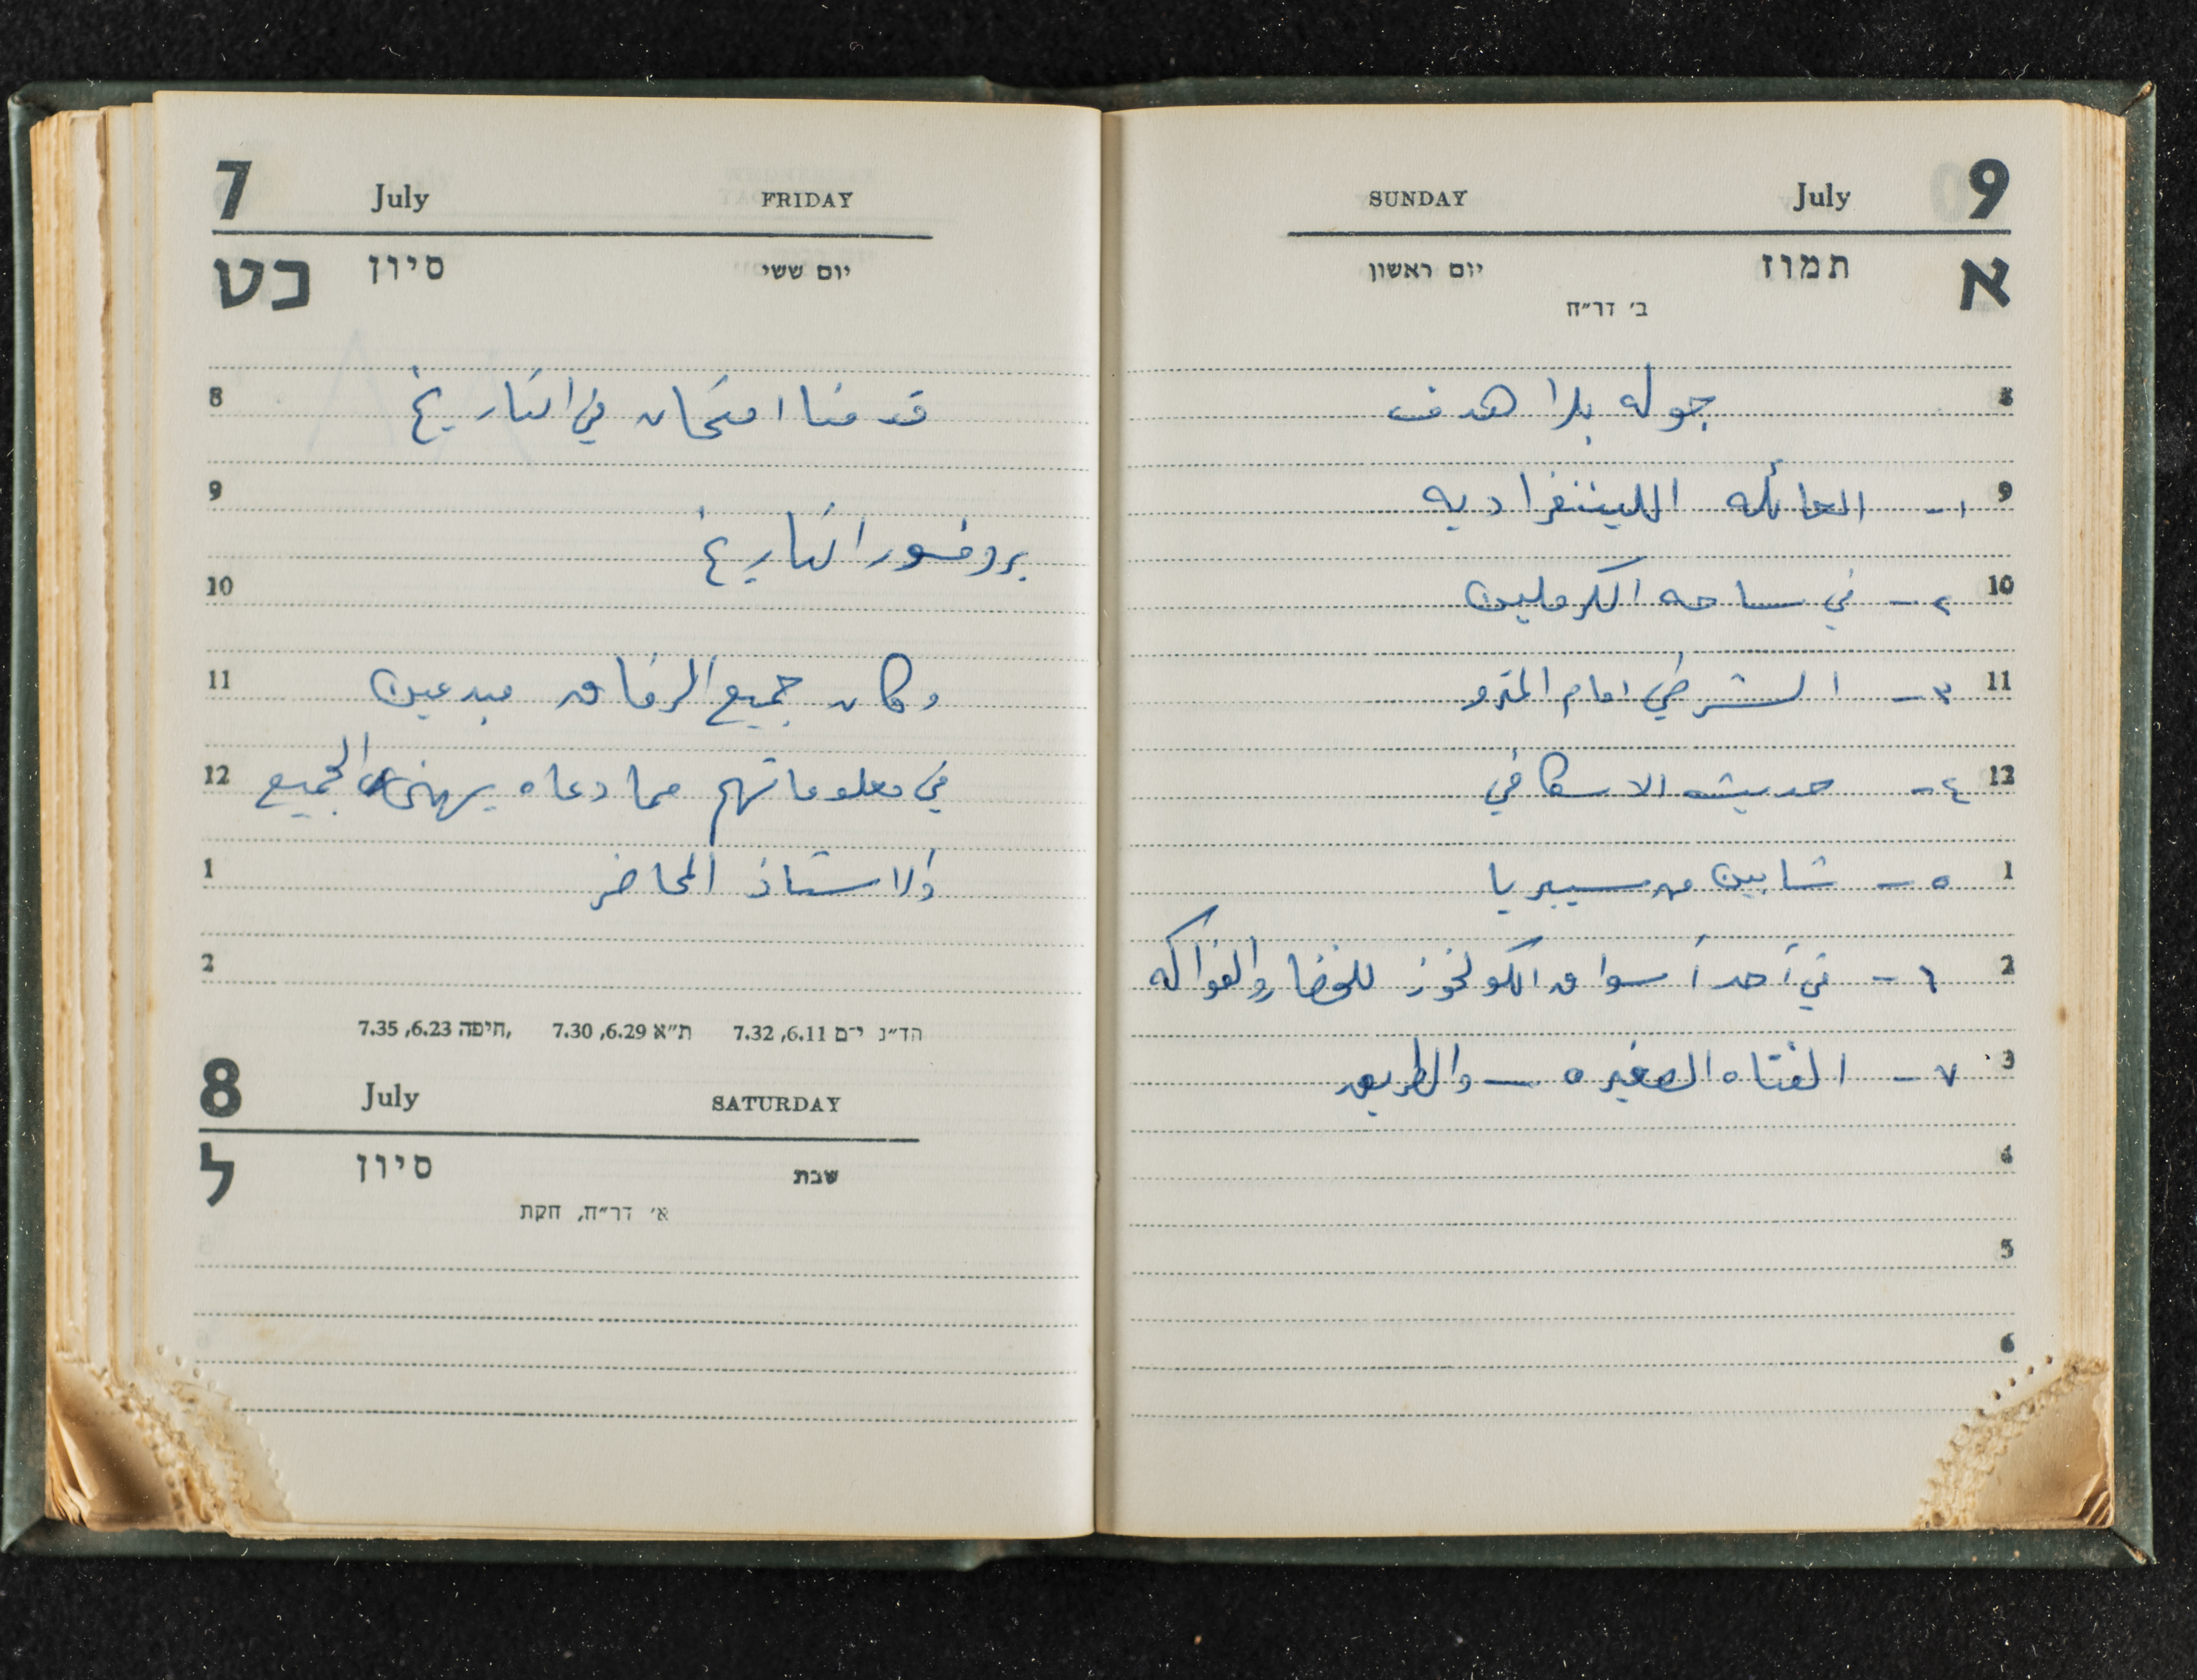 7 July FRIDAY
כט סיון יום ששי
8 قدمنا امتحان في التاريخ
9
بروفسور التاريخ
10
11 وكان جميع الرفاق مبدعين
12 في معلوماتهم مما دعاه يهنئ الجميع
1 والاستاذ المحاضر
2
הד״נ י־ם 6.11, 7.32 ת״א 6.29, 7.30 חיפה 6.23, 7.35,
8 July SATURDAY
ל סיון שבת
א׳ דר״ח, חקת
SUNDAY July 9
יום ראשון תמוז א
ב׳ דר״ח
8 جوله بلا هدف
9 ١- العائله اللينغراديه
10 ٢- في ساحه الكرملين
11 ٣- الشرطي امام المترو
12 ٤- حديث الاسكافي
1 ٥- شابين من سيبريا
2 ٦- في أحد أسواق الكولخوز للخضار والفواكه
3 ٧- الفتاه الصغيره - والطريق
4
5
6